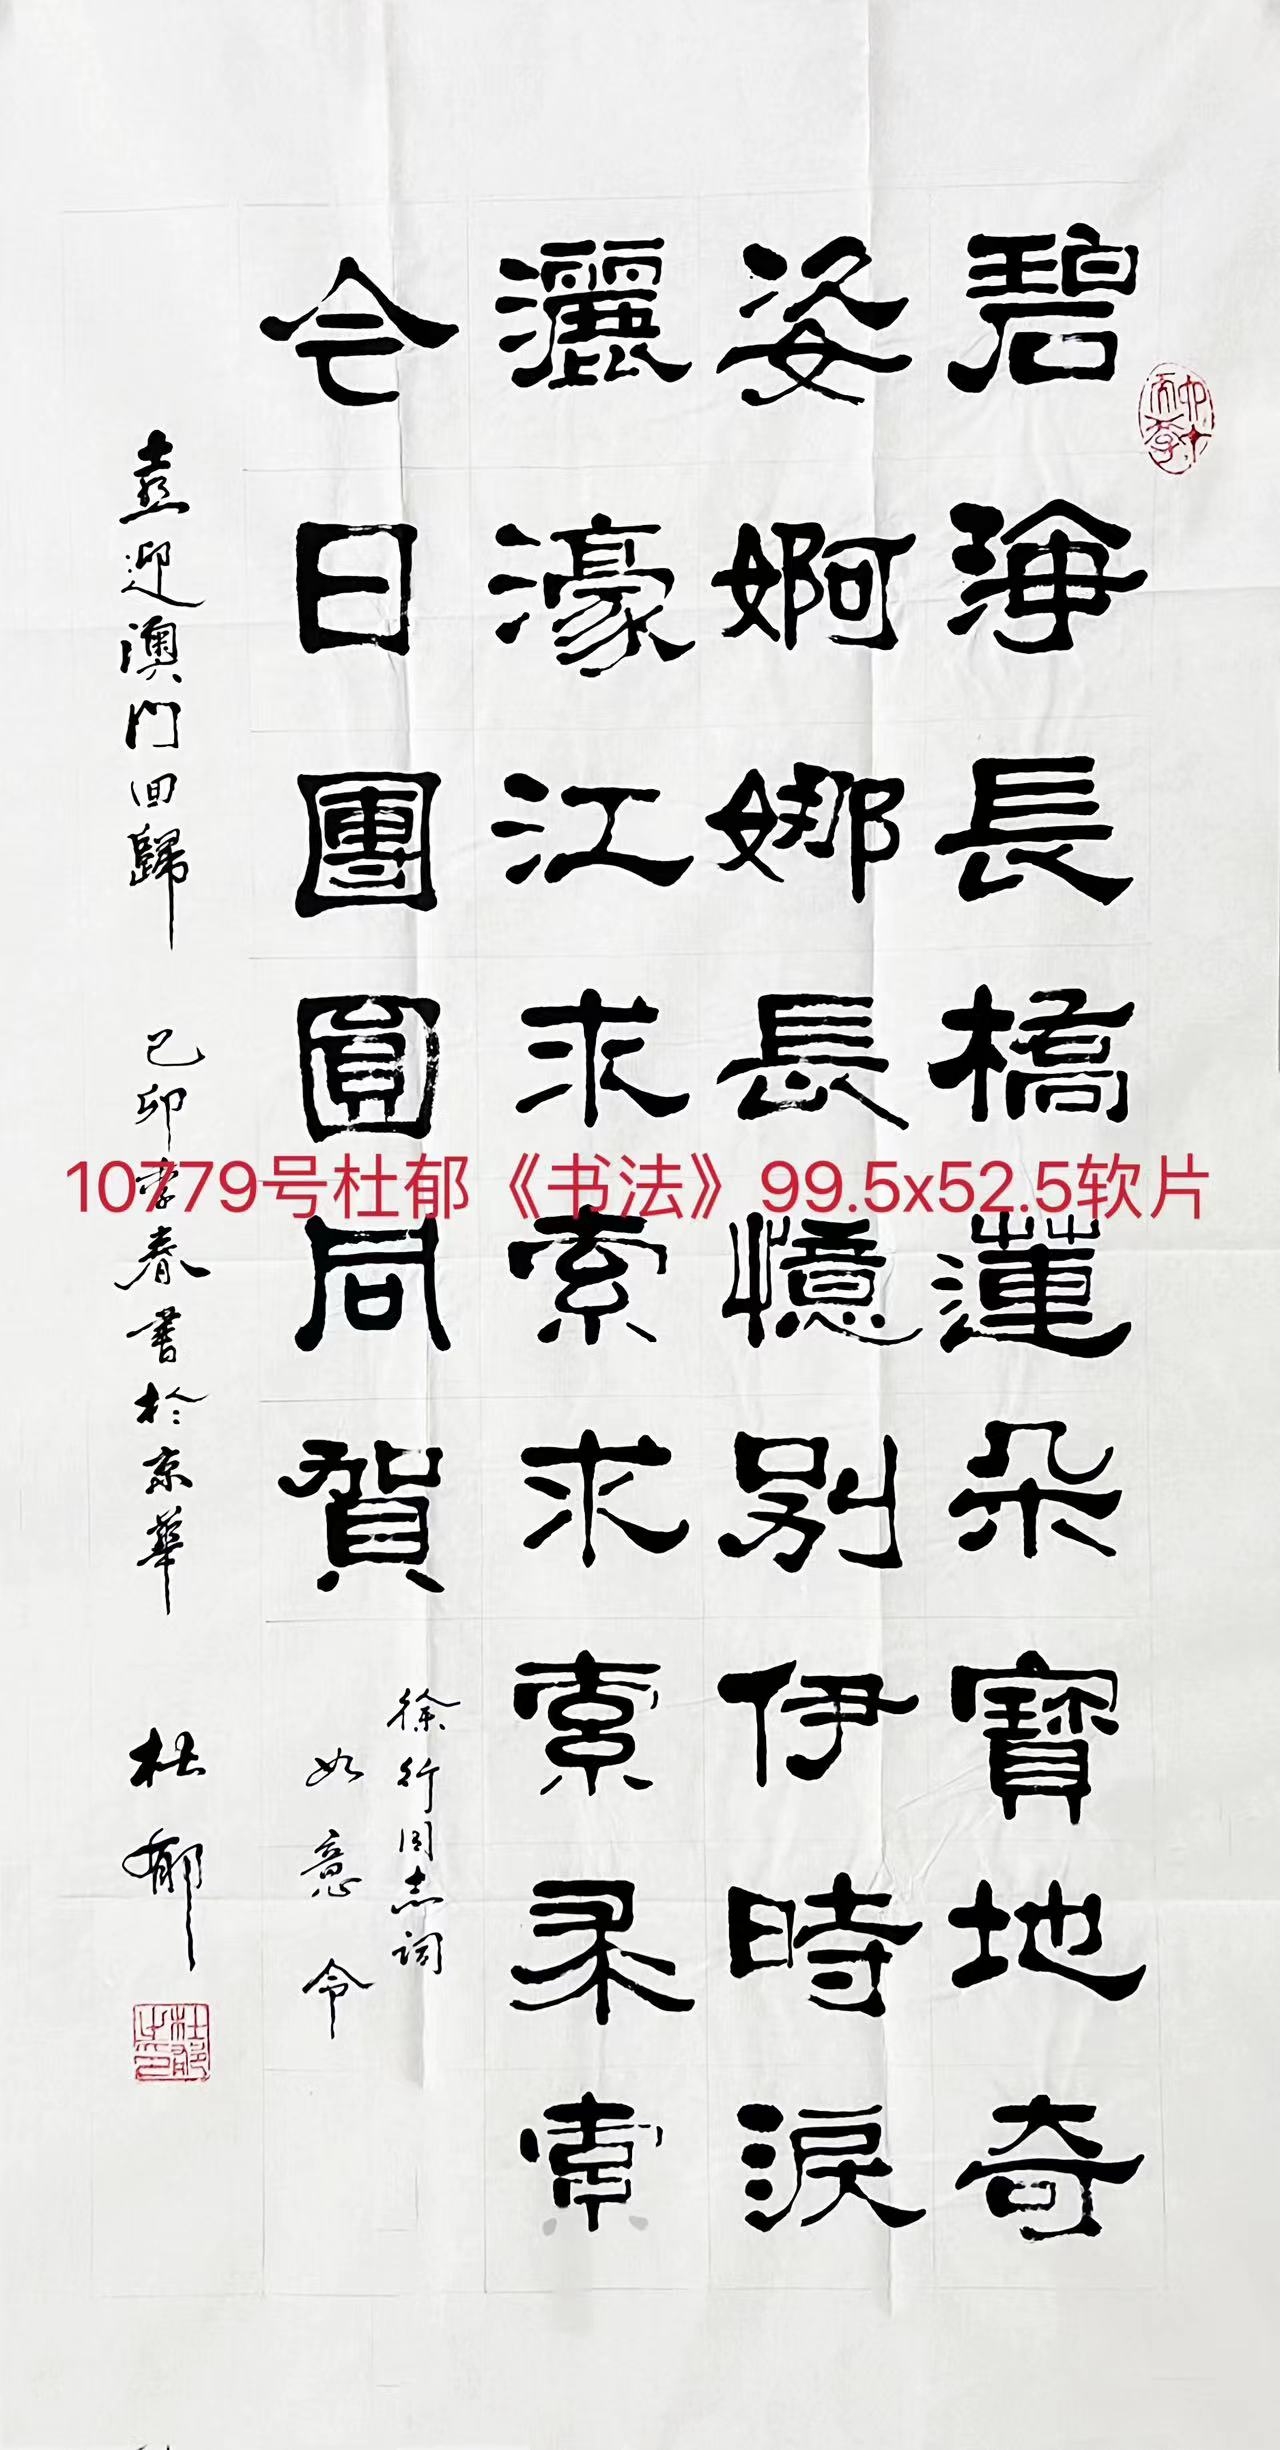 碧海長橋蓮朵寶地奇
姿婀娜長憶别伊時淚
灑濠江求索求索求索
今日團圓同賀
徐行同志詞
如意令
喜迎澳門回歸 己卯孟春書於京華 杜郁
杜郁之印
10779号杜郁《书法》99.5x52.5软片